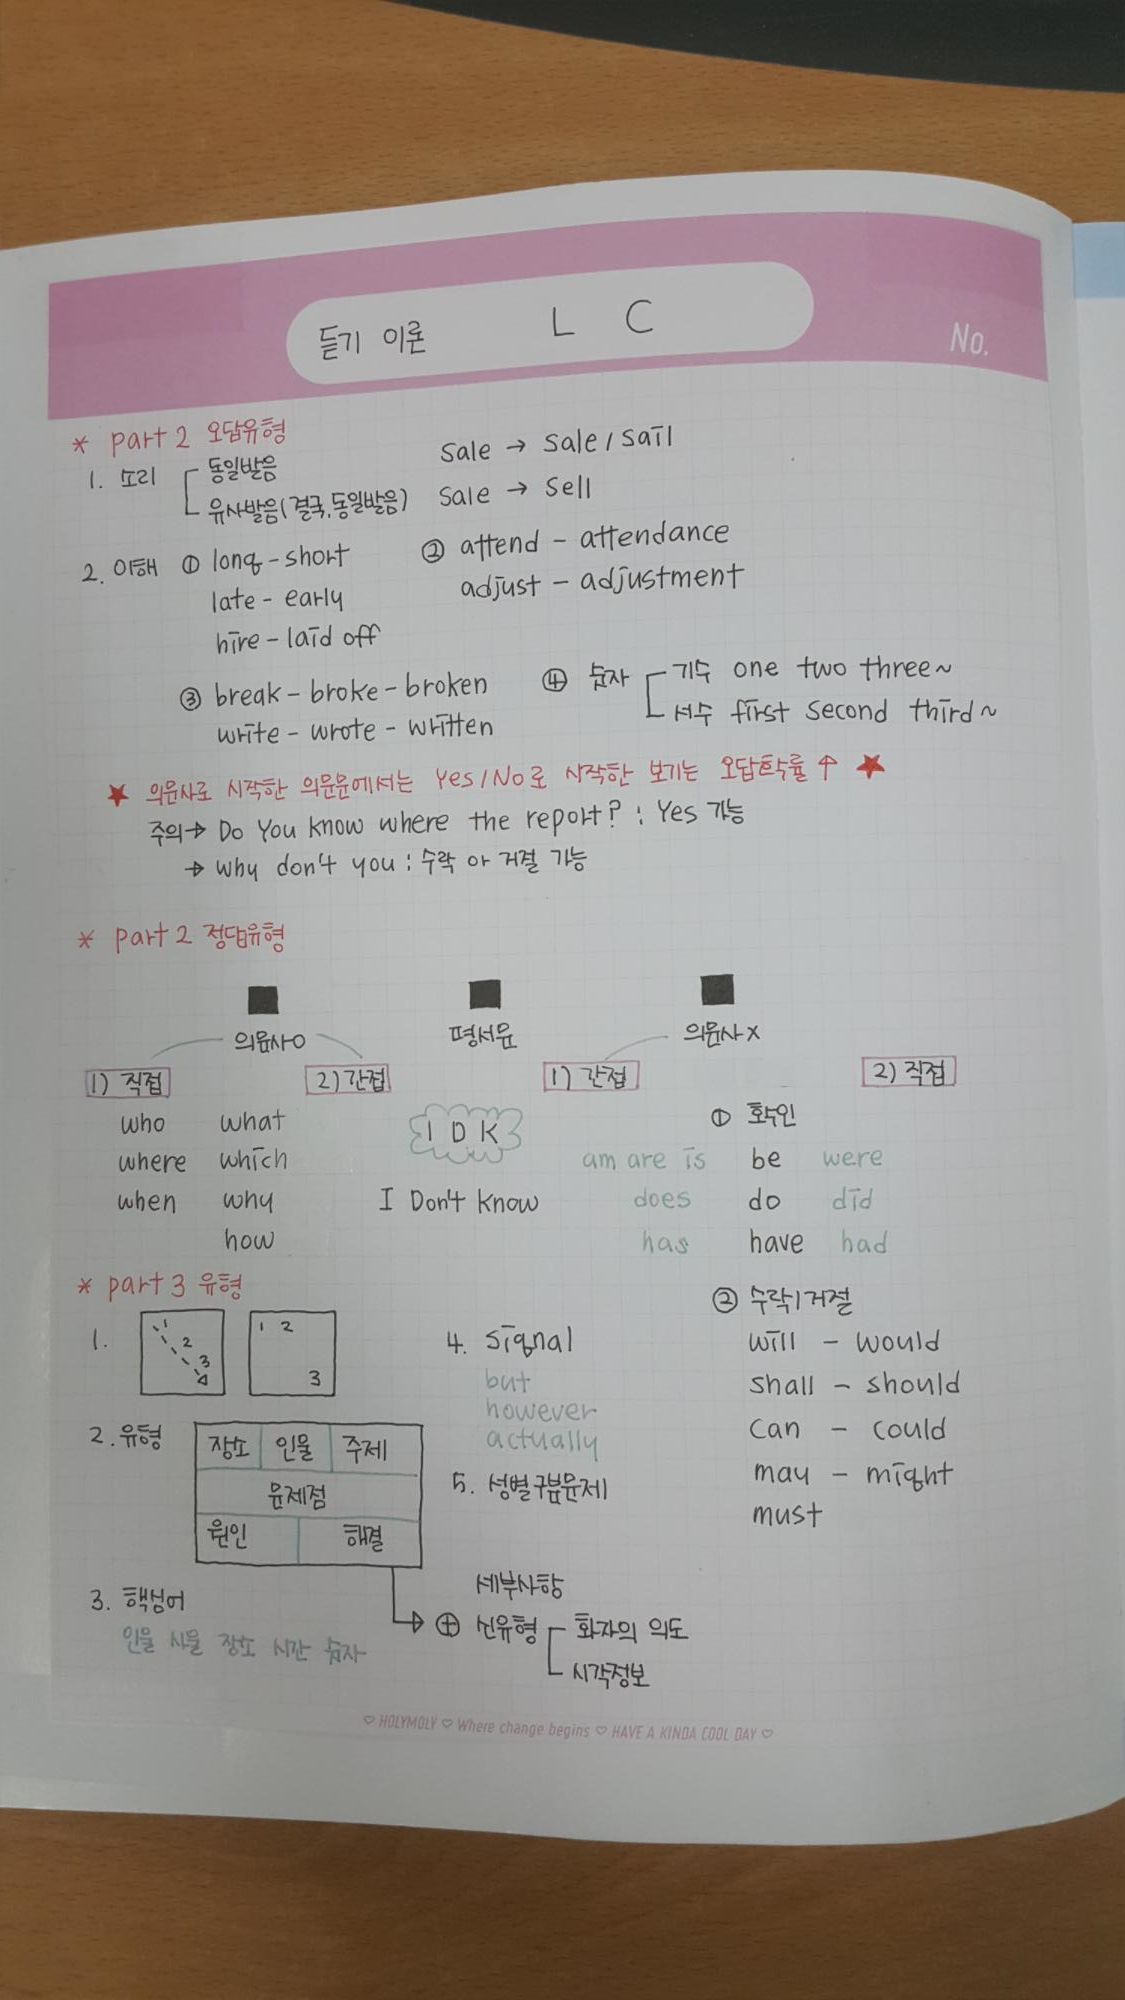 듣기 이론 L C
No.
* part 2 오답유형
1. 소리 동일발음 sale → sale / sail
유사발음(결국, 동일발음) sale → sell
2. 이해 ① long - short ② attend - attendance
late - early adjust - adjustment
hire - laid off
③ break - broke - broken ④ 숫자 기수 one two three~
write - wrote - written 서수 first second third~
★ 의문사로 시작한 의문문에서는 Yes/No로 시작한 보기는 오답확률↑ ★
주의→ Do You know where the report? : Yes 가능
→ Why don't you : 수락 or 거절 가능
* part 2 정답유형
■ ■ ■
의문사O 평서문 의문사X
1) 직접 2) 간접 1) 간접 2) 직접
who what I D K ① 확인
where which am are is be were
when why I Don't know does do did
how has have had
* part 3 유형
② 수락/거절
1. 1 2 3 1 2 3 4. signal will - would
but shall - should
however
actually can - could
2. 유형 장소 인물 주제
may - might
문제점 5. 성별구분문제
must
원인 해결
세부사항
3. 핵심어 ⊕ 신유형 화자의 의도
인물 사물 장소 시간 숫자 시각정보
♡ HOLYMOLY ♡ Where change begins ♡ HAVE A KINDA COOL DAY ♡